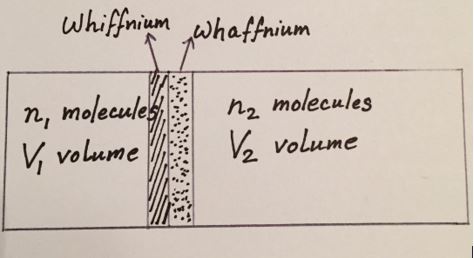 Whiffnium
Whaffnium
n₁ molecules
V₁ volume
n₂ molecules
V₂ volume